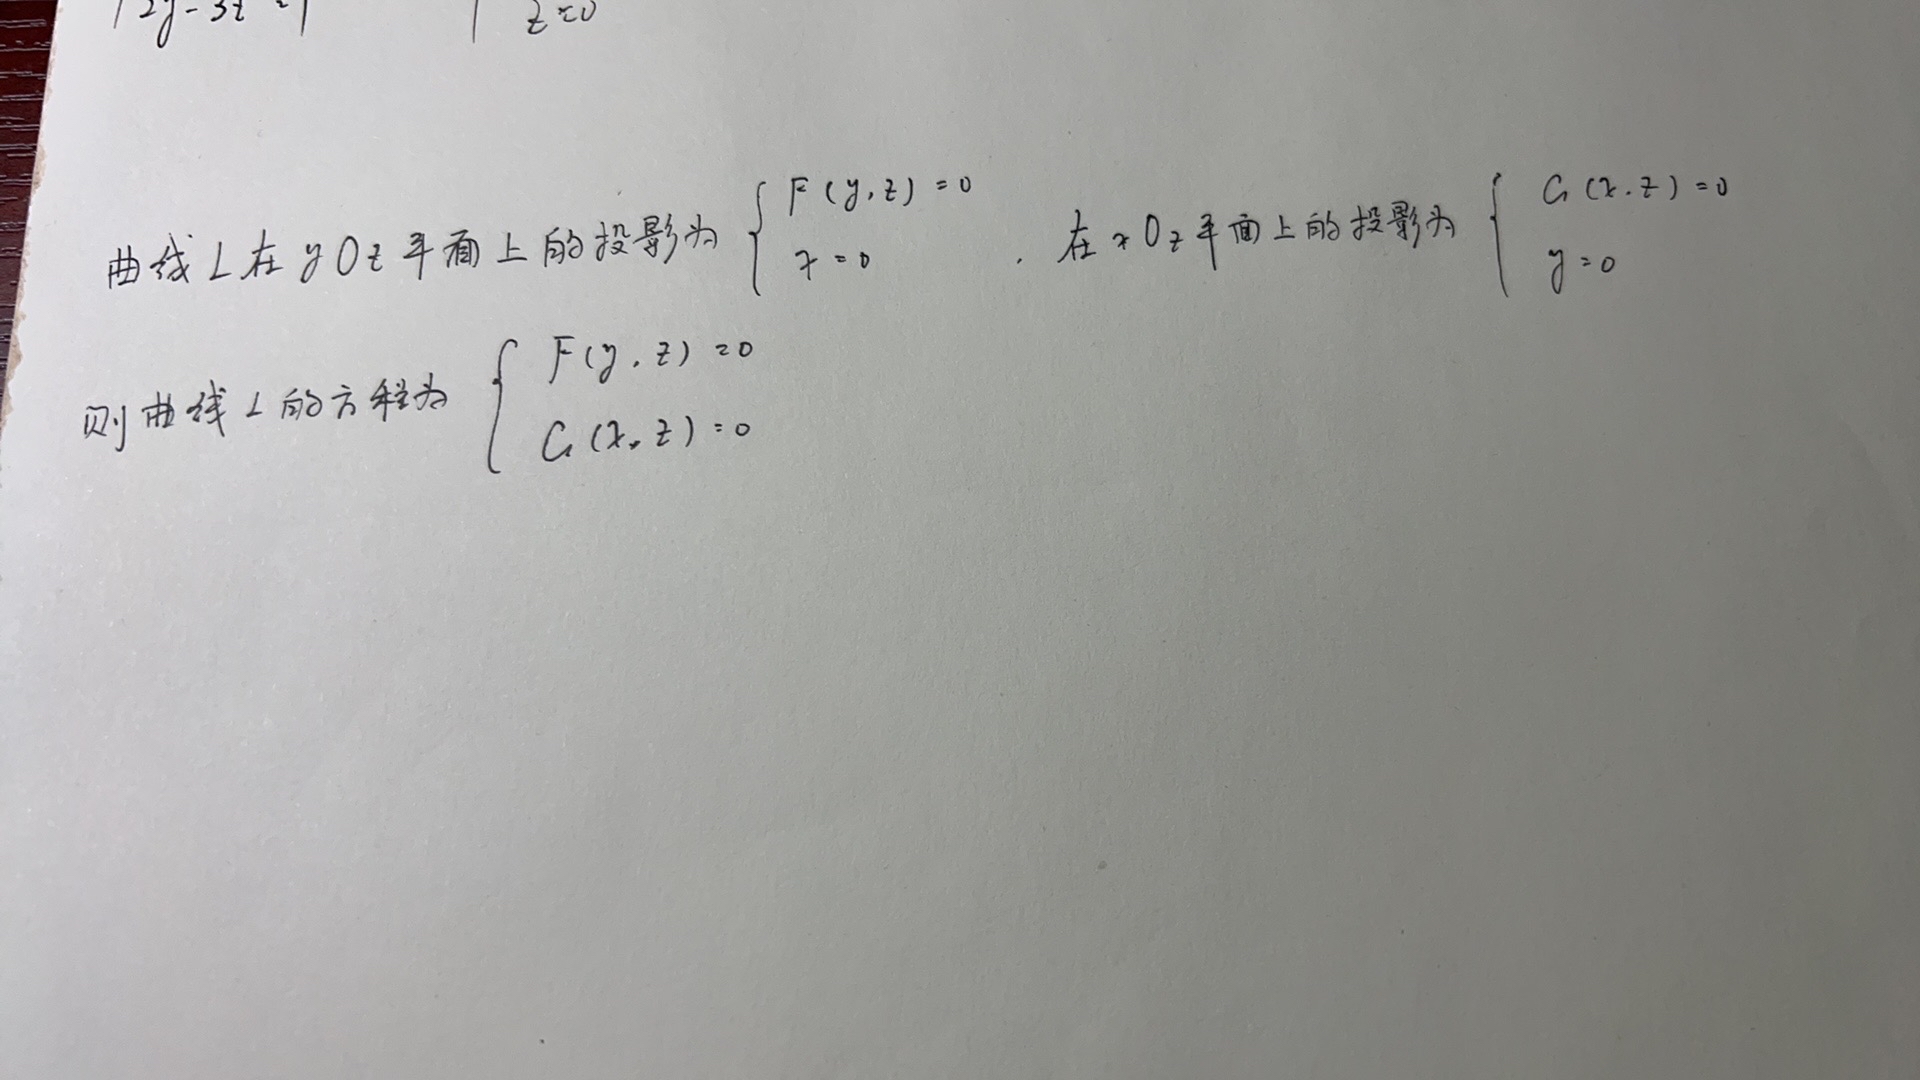 2y-3z=1 z=0
曲线L在yOz平面上的投影为 { F(y,z)=0 x=0 . 在xOz平面上的投影为 { G(x.z)=0 y=0
则曲线L的方程为 { F(y,z)=0 G(x,z)=0